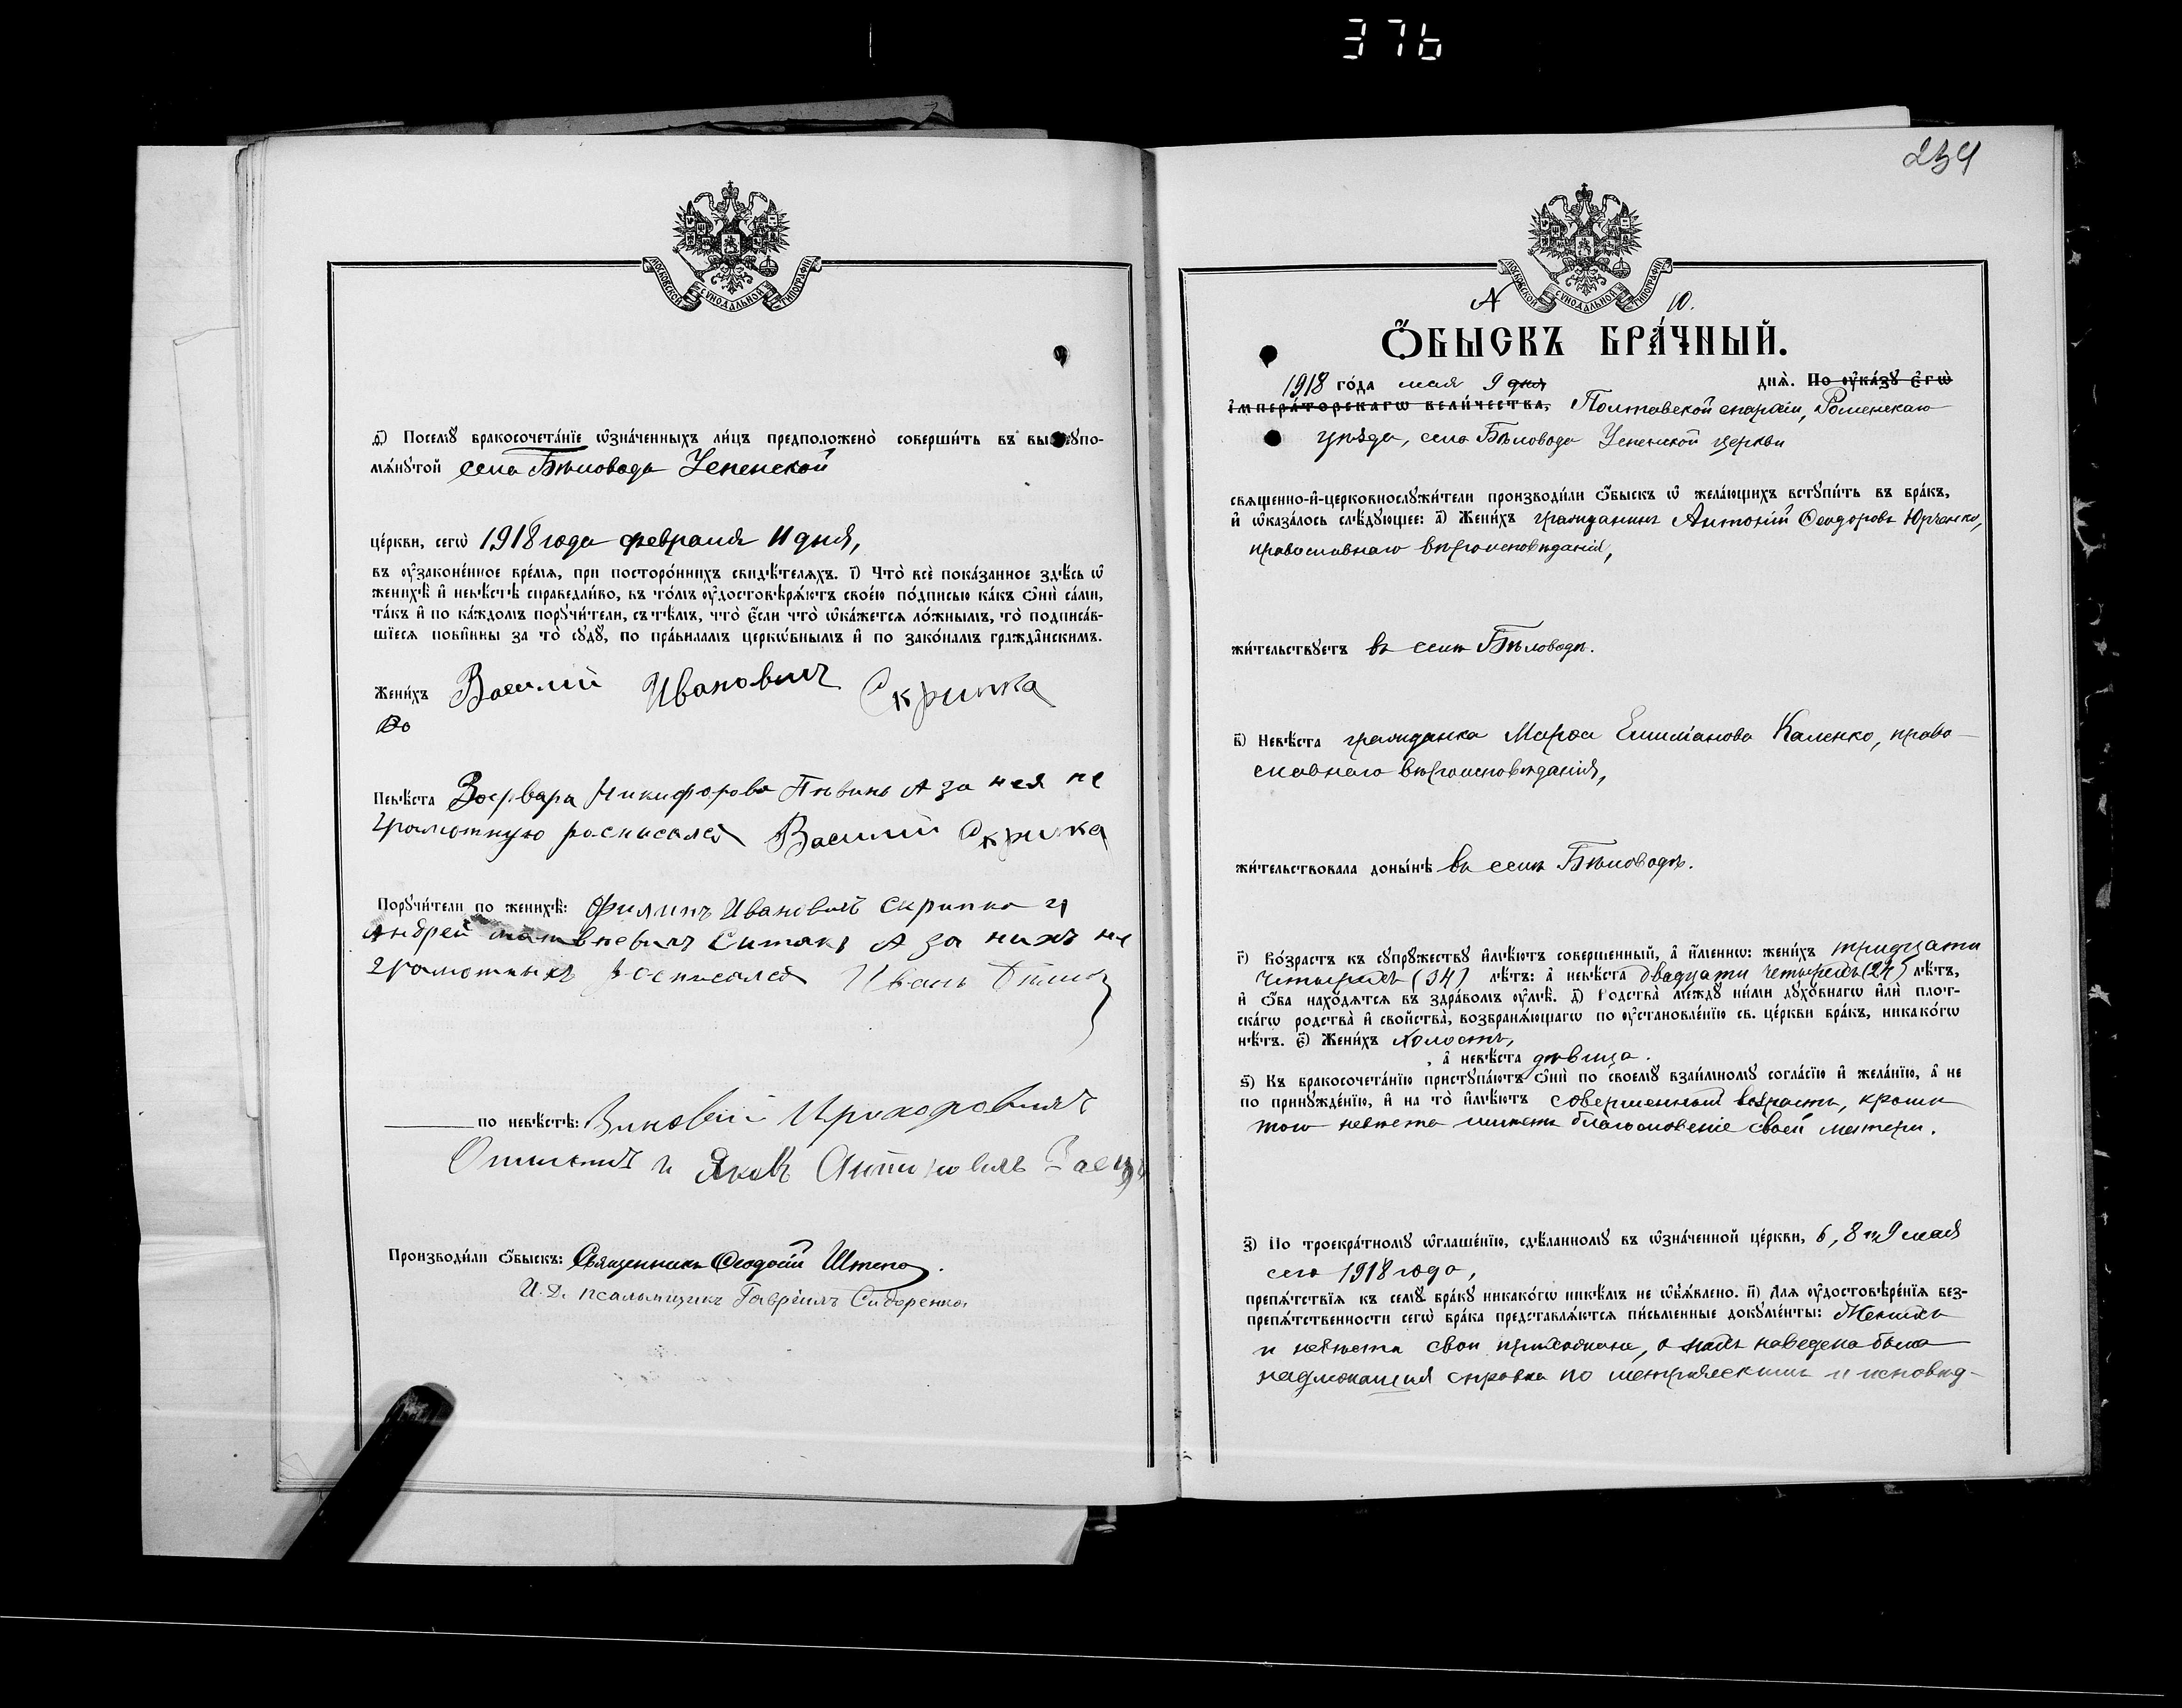 376
МОСКОВСКОЙ СѴНОДАЛЬНОЙ ТИПОГРАФІИ
ѳ҃) Посемꙋ̀ бракосочета́нїе ѡ҆зна́ченныхъ ли́цъ предположено̀ соверши́ть въ вышеꙋпо-
мѧ́нꙋтой села Бѣловодъ Успенской
це́ркви, сегѡ̀ 1918 года февраля 11 дня,
въ ᲂу҆зако́ненное вре́мѧ, при посторо́ннихъ свидѣ́телѧхъ. і҃) Что̀ всѐ пока́занное здѣ́сь ѡ҆
женихѣ̀ и҆ невѣ́стѣ справедли́во, въ то́мъ ᲂу҆достовѣрѧ́ютъ свое́ю по́дписью ка́къ ѻ҆нѝ са́ми,
та́къ и҆ по ка́ждомъ порꙋчи́тели, съ тѣ́мъ, что̀ є҆́сли что̀ ѡ҆ка́жетсѧ ло́жнымъ, то̀ подписа́в-
шїесѧ пови́нны за то̀ сꙋдꙋ̀, по пра́виламъ церко́внымъ и҆ по зако́намъ гражда́нскимъ.
Жени́хъ Василий Ивановичъ Скрипка
Во
Невѣ́ста Варвара Никифорова Пивинь А за нея не
грамотную росписался Василий Скрипка
Порꙋчи́тели по женихѣ̀: Филипъ Ивановичъ Скрипка и
Андрей Матвѣевичъ А за нихъ не
грамотныхъ росписался Иванъ
по невѣ́стѣ: Зиновій Прохоровичъ
и Яковъ Антоновичъ
Производи́ли ѻ҆́быскъ: Священникъ Ѳеодосій Штепа.
И. д. псаломщикъ Гавріилъ Сидоренко
234
МОСКОВСКОЙ СѴНОДАЛЬНОЙ ТИПОГРАФІИ
№ 10.
Ѻ҆́БЫСКЪ БРА́ЧНЫЙ.
1918 го́да мая 9 дня днѧ̀. По ᲂу҆ка́зꙋ є҆гѡ̀
и҆мпера́торскагѡ вели́чества, Полтавской епархіи, Роменскаго
уѣзда, села Бѣловода Успенской церкви
свѧщенно-и҆-церковнослꙋжи́тели производи́ли ѻ҆́быскъ ѡ҆ жела́ющихъ встꙋпи́ть въ бра́къ,
и҆ ѡ҆каза́лось слѣ́дꙋющее: а҃) Жени́хъ гражданинъ Антоній Ѳеодоровъ Юрченко,
православнаго вѣроисповѣданія,
жи́тельствꙋетъ въ селѣ Бѣловодѣ.
в҃) Невѣ́ста гражданка Марѳа Емиліанова Каленко, право-
славнаго вѣроисповѣданія,
жи́тельствовала доны́нѣ въ селѣ Бѣловодѣ.
г҃) Во́зрастъ къ сꙋпрꙋ́жествꙋ и҆мѣ́ютъ соверше́нный, а҆ и҆́менно: жени́хъ тридцати
четырехъ (34) лѣ́тъ: а҆ невѣ́ста двадцати четырехъ (24) лѣ́тъ,
и҆ ѻ҆́ба нахо́дѧтсѧ въ здра́вомъ ᲂу҆мѣ̀. д҃) Родства̀ междꙋ̀ ни́ми дꙋхо́внагѡ и҆лѝ плот-
ска́гѡ родства̀ и҆ сво́йства̀, возбранѧ́ющагѡ по ᲂу҆становле́нїю св. це́ркви бра́къ, никако́гѡ
нѣ́тъ. є҃) Жени́хъ холостъ,
, а҆ невѣ́ста дѣвица.
ѕ҃) Къ бракосочета́нїю пристꙋпа́ютъ ѻ҆нѝ по своемꙋ̀ взаи́мномꙋ согла́сїю и҆ жела́нїю, а҆ не
по принꙋжде́нїю, и҆ на то̀ и҆мѣ́ютъ совершенный возрастъ, кромѣ
того невѣста имѣетъ благословеніе своей матери.
з҃) По троекра́тномꙋ ѡ҆глаше́нїю, сдѣ́ланномꙋ въ ѡ҆зна́ченной це́ркви, 6, 8 и 9 мая
сего 1918 года,
препѧ́тствїѧ къ семꙋ̀ бра́кꙋ никако́гѡ никѣ́мъ не ѡ҆б̾ѧ́влено. и҃) Длѧ ᲂу҆достовѣре́нїѧ без-
препѧ́тственности сегѡ̀ бра́ка представлѧ́ютсѧ пи́сьменные докꙋме́нты: Женихъ
и невѣста свои прихожане, о нихъ наведена была
надлежащая справка по метрическимъ и исповѣд-